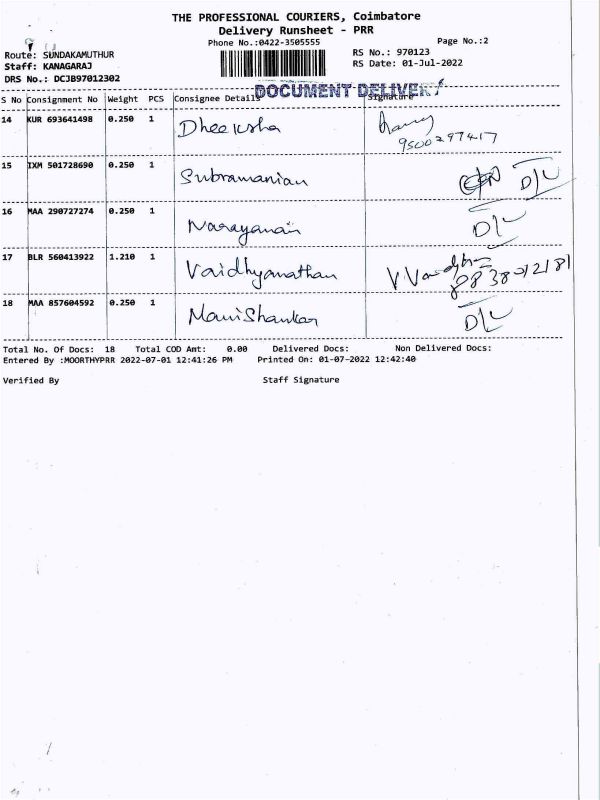 THE PROFESSIONAL COURIERS, Coimbatore
Delivery Runsheet - PRR
Phone No.:0422-3505555
Page No.:2
Route: SUNDAKAMUTHUR
RS No.: 970123
Staff: KANAGARAJ
RS Date: 01-Jul-2022
DRS No.: DCJB97012302
DOCUMENT DELIVERY
S No Consignment No Weight PCS Consignee Details Signature
14 KUR 693641498 0.250 1 Dheeksha
9500297417
15 IXM 501728690 0.250 1 Subramanian D/L
16 MAA 290727274 0.250 1 Narayanan D/L
17 BLR 560413922 1.210 1 Vaidhyanathan
18 MAA 857604592 0.250 1 ManiShankar D/L
Total No. Of Docs: 18 Total COD Amt: 0.00 Delivered Docs: Non Delivered Docs:
Entered By :MOORTHYPRR 2022-07-01 12:41:26 PM Printed On: 01-07-2022 12:42:40
Verified By Staff Signature